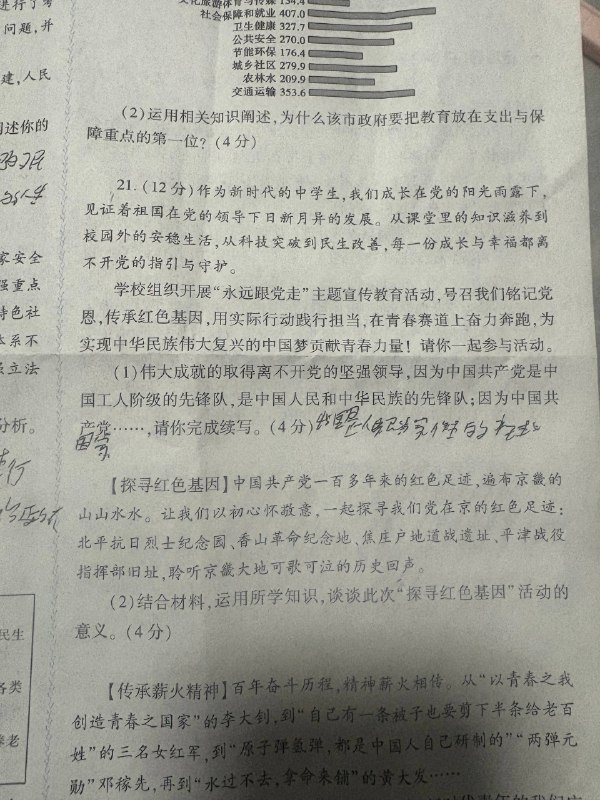 进行了考
问题，并
建，人民
述你的
家安全
强重点
特色社
体系不
立法
分析。
民生
各类
养老
文化旅游体育与传媒 134.4
社会保障和就业 407.0
卫生健康 327.7
公共安全 270.0
节能环保 176.4
城乡社区 279.9
农林水 209.9
交通运输 353.6
(2)运用相关知识阐述，为什么该市政府要把教育放在支出与保
障重点的第一位？(4分)
21.(12分)作为新时代的中学生，我们成长在党的阳光雨露下，
见证着祖国在党的领导下日新月异的发展。从课堂里的知识滋养到
校园外的安稳生活，从科技突破到民生改善，每一份成长与幸福都离
不开党的指引与守护。
学校组织开展“永远跟党走”主题宣传教育活动，号召我们铭记党
恩，传承红色基因，用实际行动践行担当，在青春赛道上奋力奔跑，为
实现中华民族伟大复兴的中国梦贡献青春力量！请你一起参与活动。
(1)伟大成就的取得离不开党的坚强领导，因为中国共产党是中
国工人阶级的先锋队，是中国人民和中华民族的先锋队；因为中国共
产党……，请你完成续写。(4分)
【探寻红色基因】中国共产党一百多年来的红色足迹，遍布京畿的
山山水水。让我们以初心怀敬意，一起探寻我们党在京的红色足迹：
北平抗日烈士纪念园、香山革命纪念地、焦庄户地道战遗址、平津战役
指挥部旧址，聆听京畿大地可歌可泣的历史回声。
(2)结合材料，运用所学知识，谈谈此次“探寻红色基因”活动的
意义。(4分)
【传承薪火精神】百年奋斗历程，精神薪火相传。从“以青春之我
创造青春之国家”的李大钊，到“自己有一条被子也要剪下半条给老百
姓”的三名女红军，到“原子弹氢弹，都是中国人自己研制的”“两弹元
勋”邓稼先，再到“水过不去，拿命来铺”的黄大发……